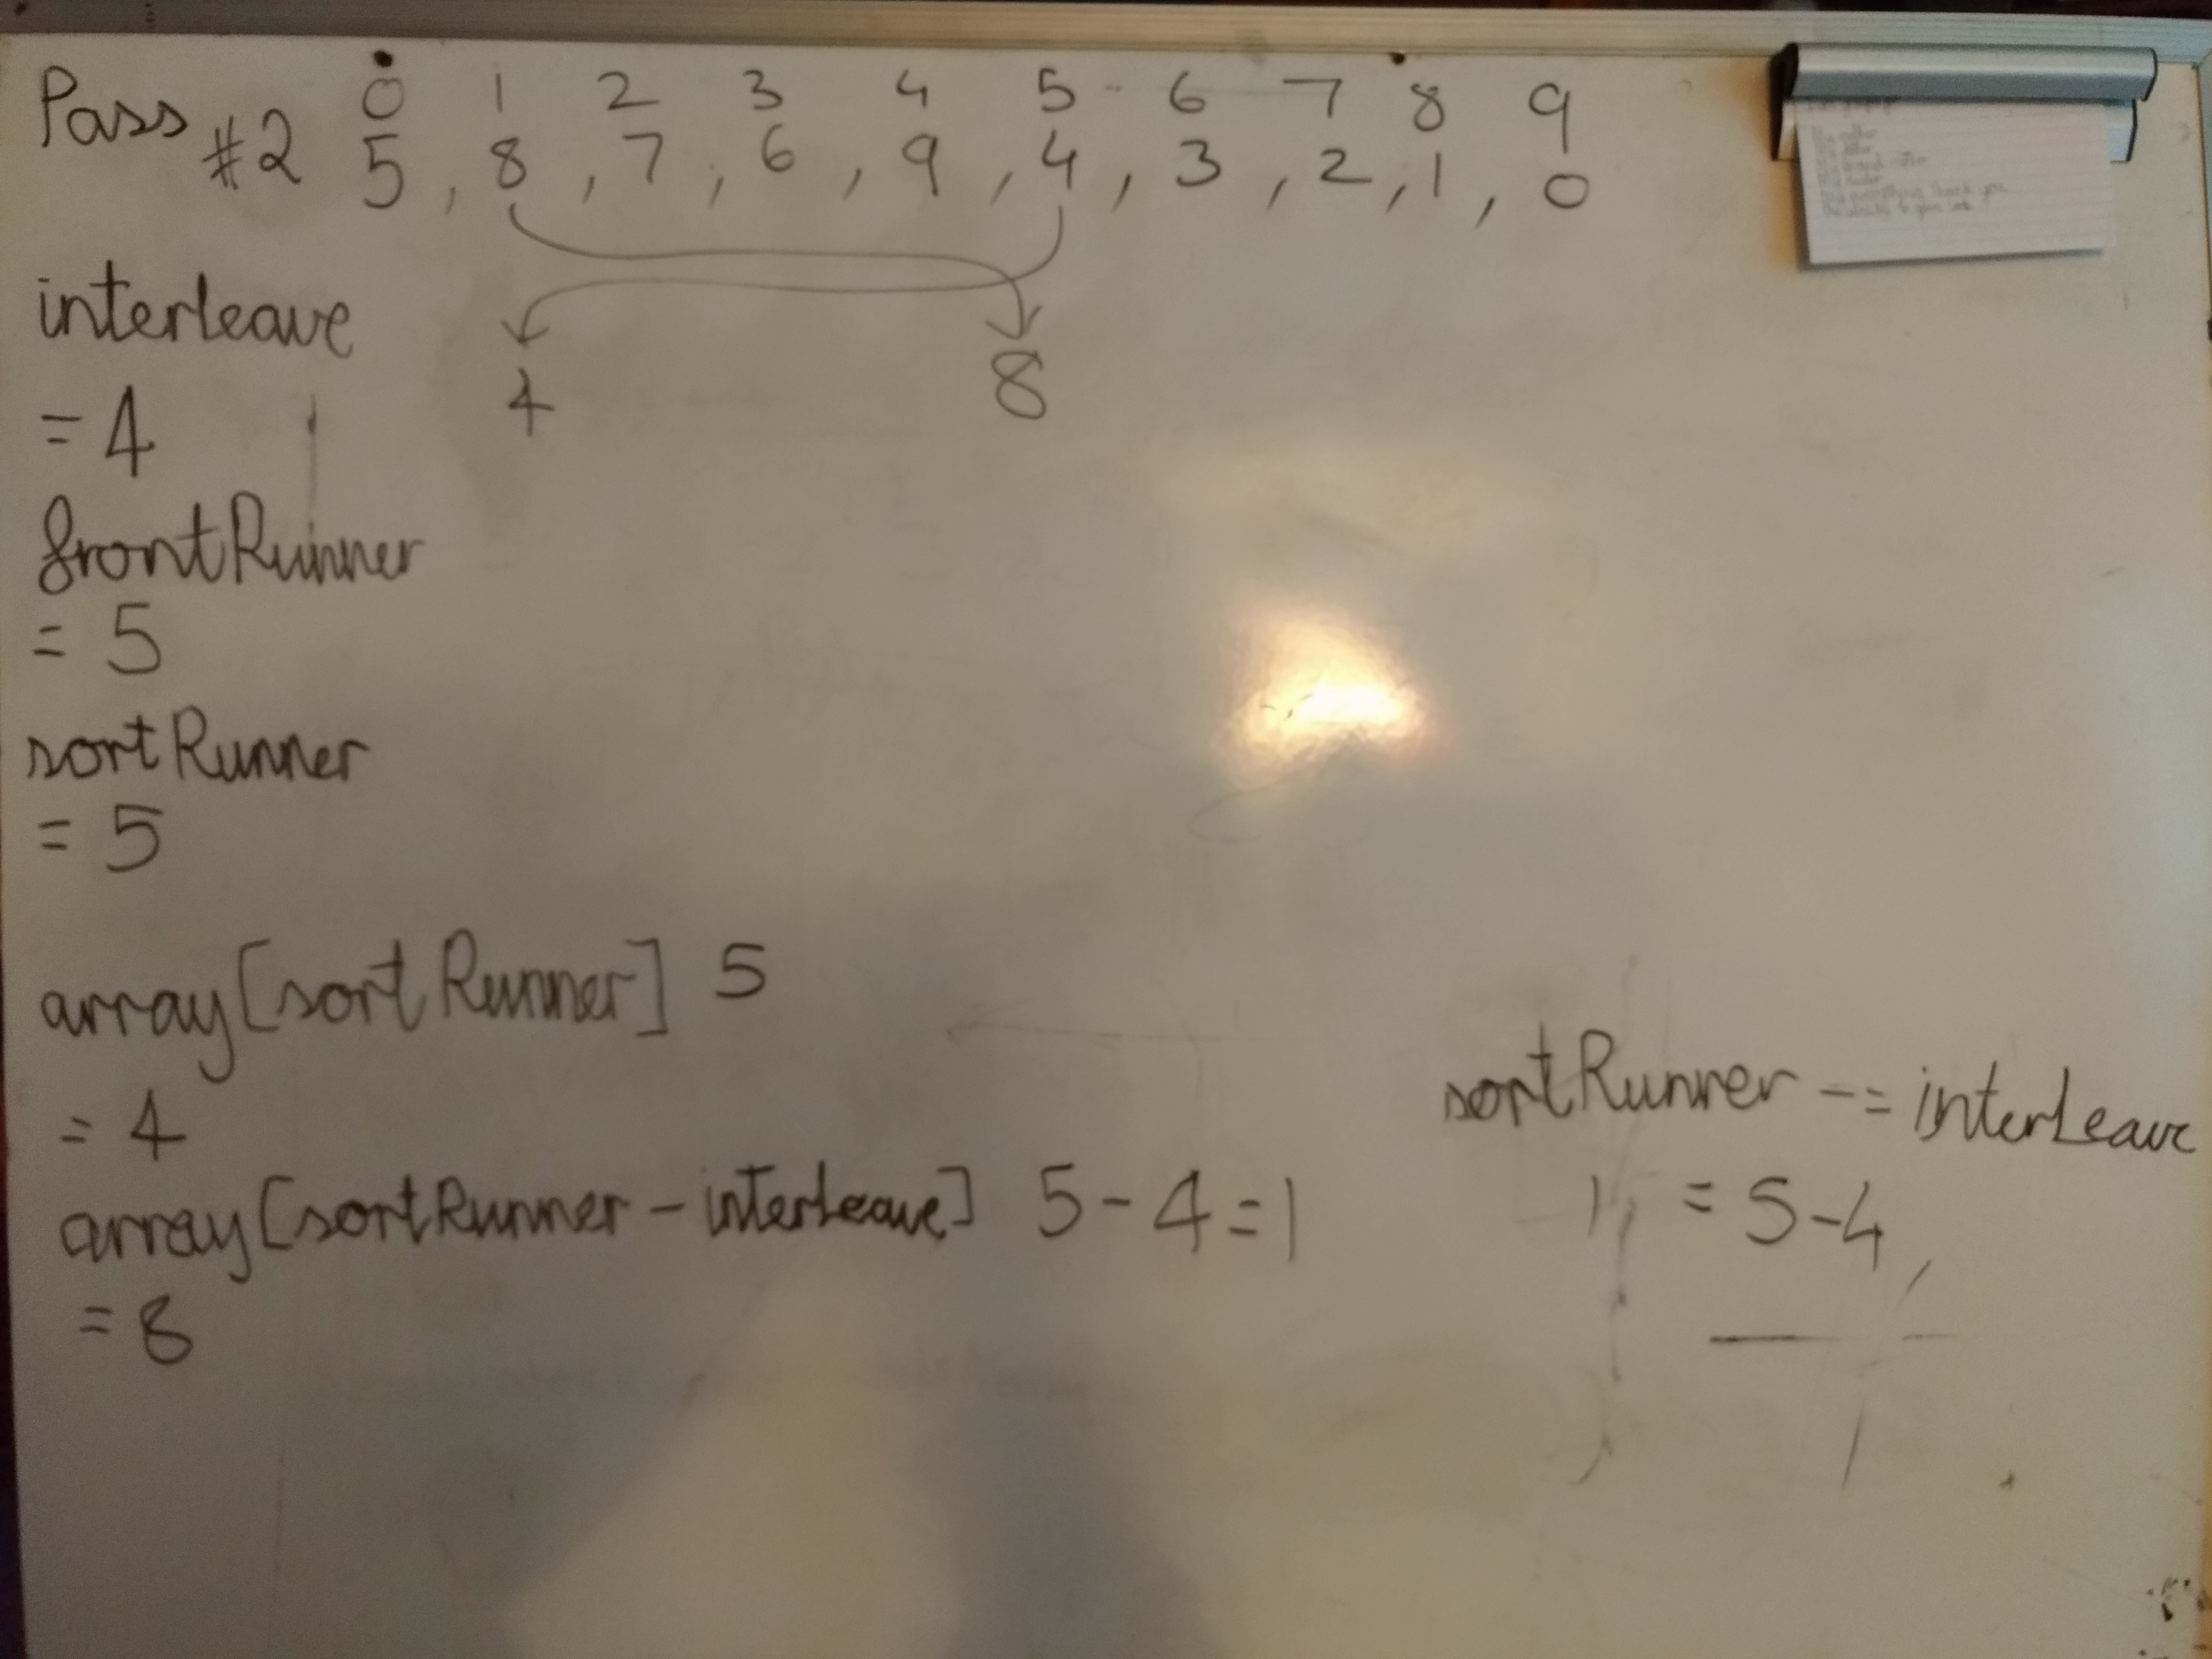 Pass #2
0 1 2 3 4 5 6 7 8 9
5, 8, 7, 6, 9, 4, 3, 2, 1, 0
interleave
= 4
4 8
frontRunner
= 5
sortRunner
= 5
array[sortRunner] 5
= 4
array[sortRunner - interleave] 5-4=1
= 8
sortRunner -= interLeave
1 = 5-4